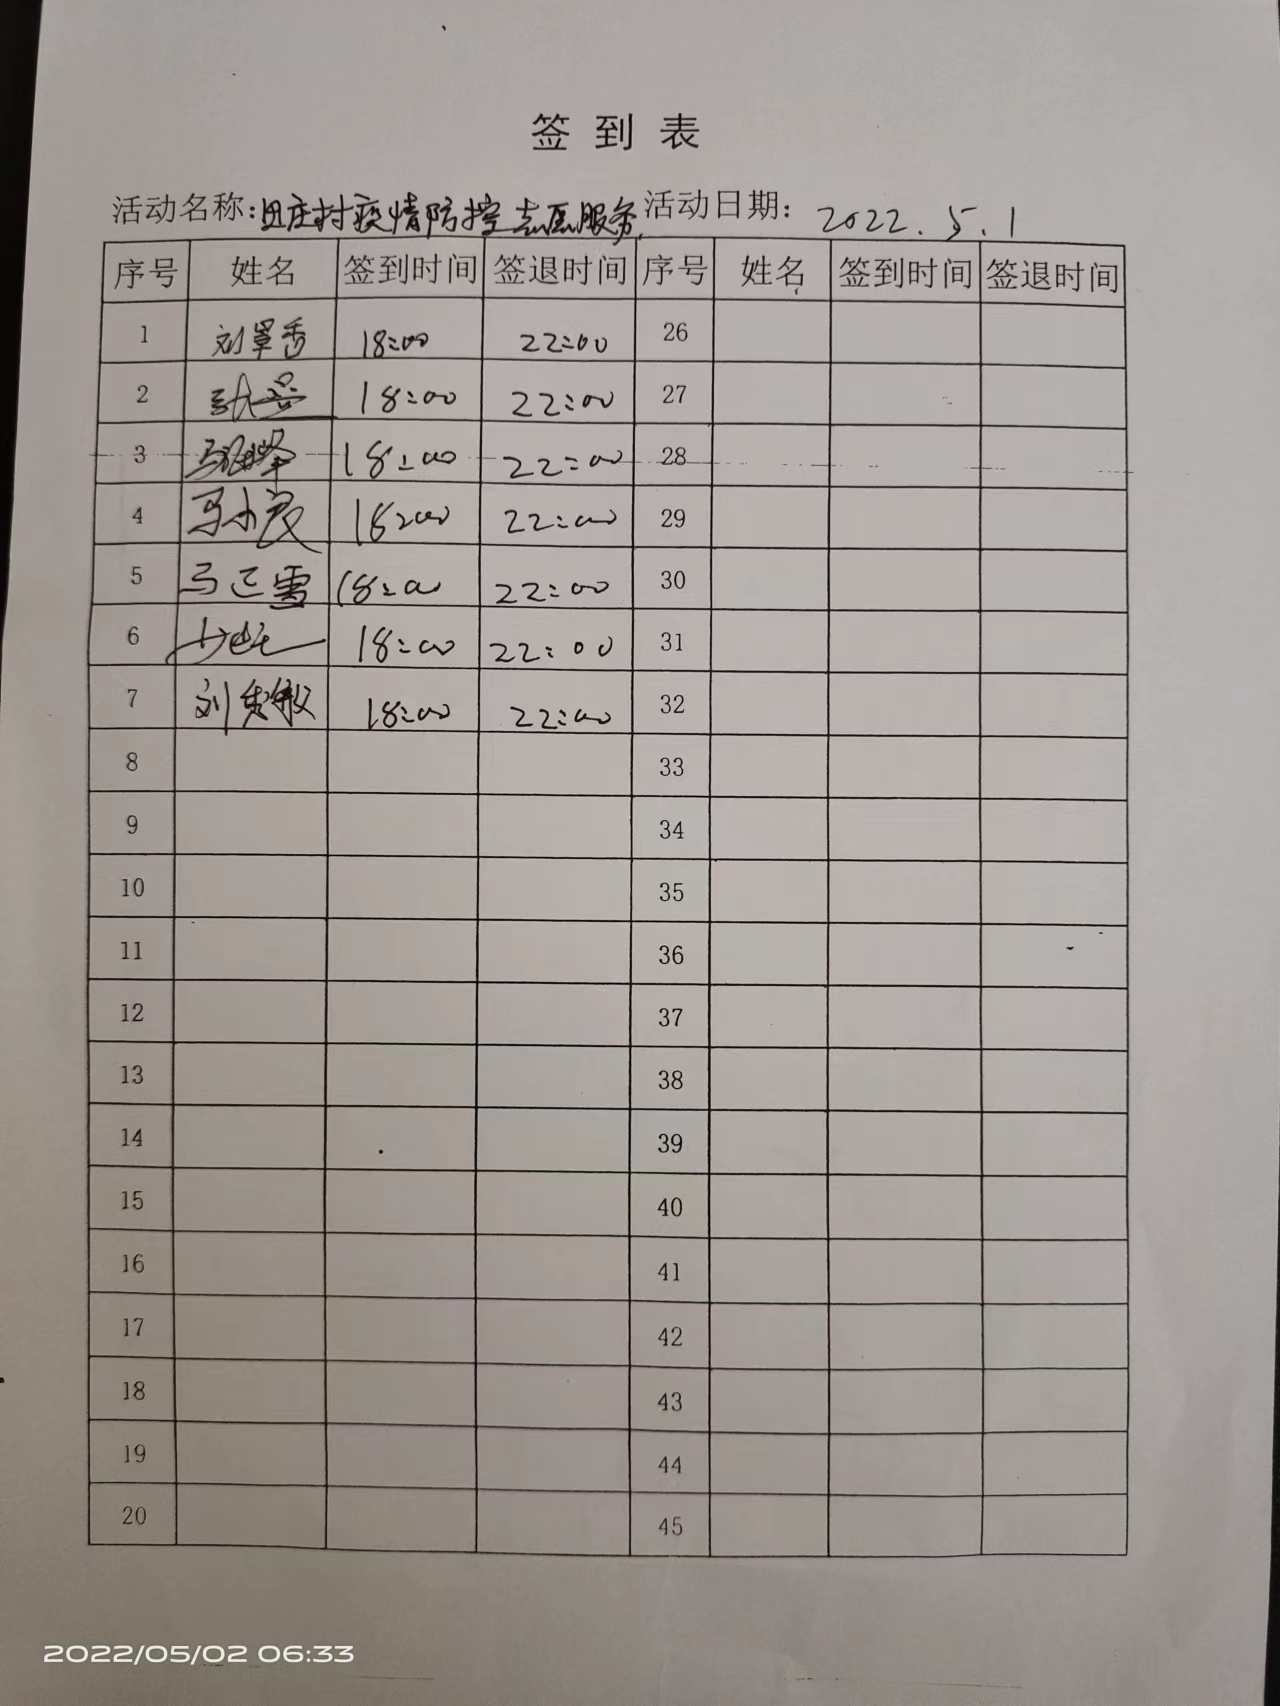 签到表
活动名称:田庄村疫情防控志愿服务 活动日期: 2022.5.1
序号 姓名 签到时间 签退时间 序号 姓名 签到时间 签退时间
1 18:00 22:00 26
2 18:00 22:00 27
3 18:00 22:00 28
4 马小良 18:00 22:00 29
5 马正雷 18:00 22:00 30
6 18:00 22:00 31
7 18:00 22:00 32
8 33
9 34
10 35
11 36
12 37
13 38
14 39
15 40
16 41
17 42
18 43
19 44
20 45
2022/05/02 06:33